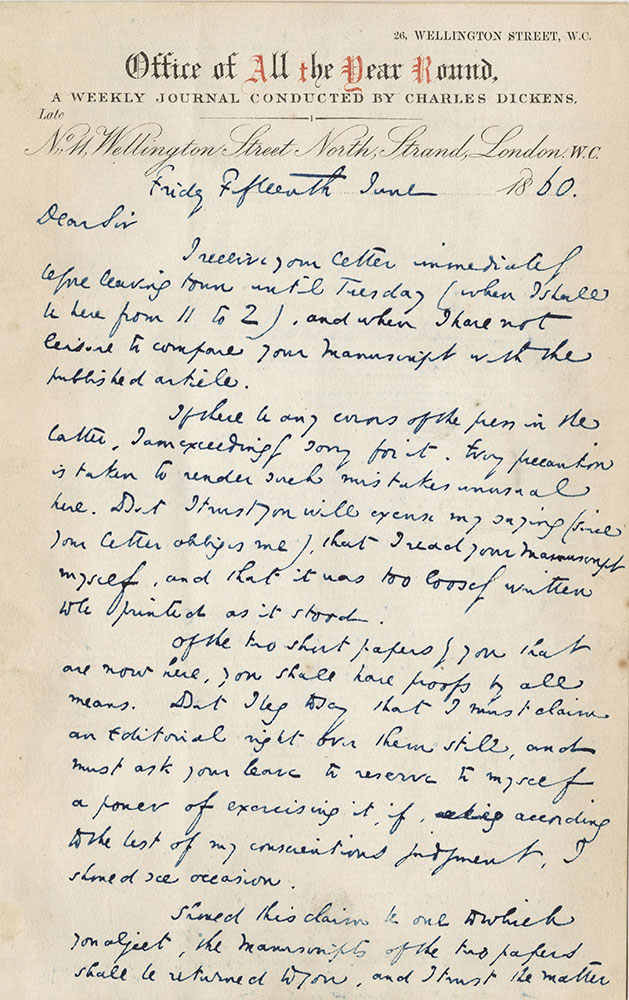 26, WELLINGTON STREET, W.C.
Office of All the Year Round,
A WEEKLY JOURNAL CONDUCTED BY CHARLES DICKENS.
Late
No. 11, Wellington Street North, Strand, London. W.C.
Friday Fifteenth June 1860.
Dear Sir
I receive your letter immediately
before leaving town until Tuesday (when I shall
be here from 11 to 2), and when I have not
leisure to compare your Manuscript with the
published article.
If there be any errors of the press in the
latter, I am exceedingly sorry for it. Every precaution
is taken to render such mistakes unusual
here. But I trust you will excuse my saying (since
your letter obliges me), that I read your Manuscript
myself, and that it was too loosely written
to be printed as it stood.
Of the two short papers by you that
are now here, you shall have proofs by all
means. But I beg to say that I must claim
an Editorial right over them still, and
must ask your leave to reserve to myself
a power of exercising it, if, according
to the best of my conscientious judgment, I
should see occasion.
Should this claim be one to which
you object, the Manuscripts of the two papers
shall be returned to you, and I trust the matter